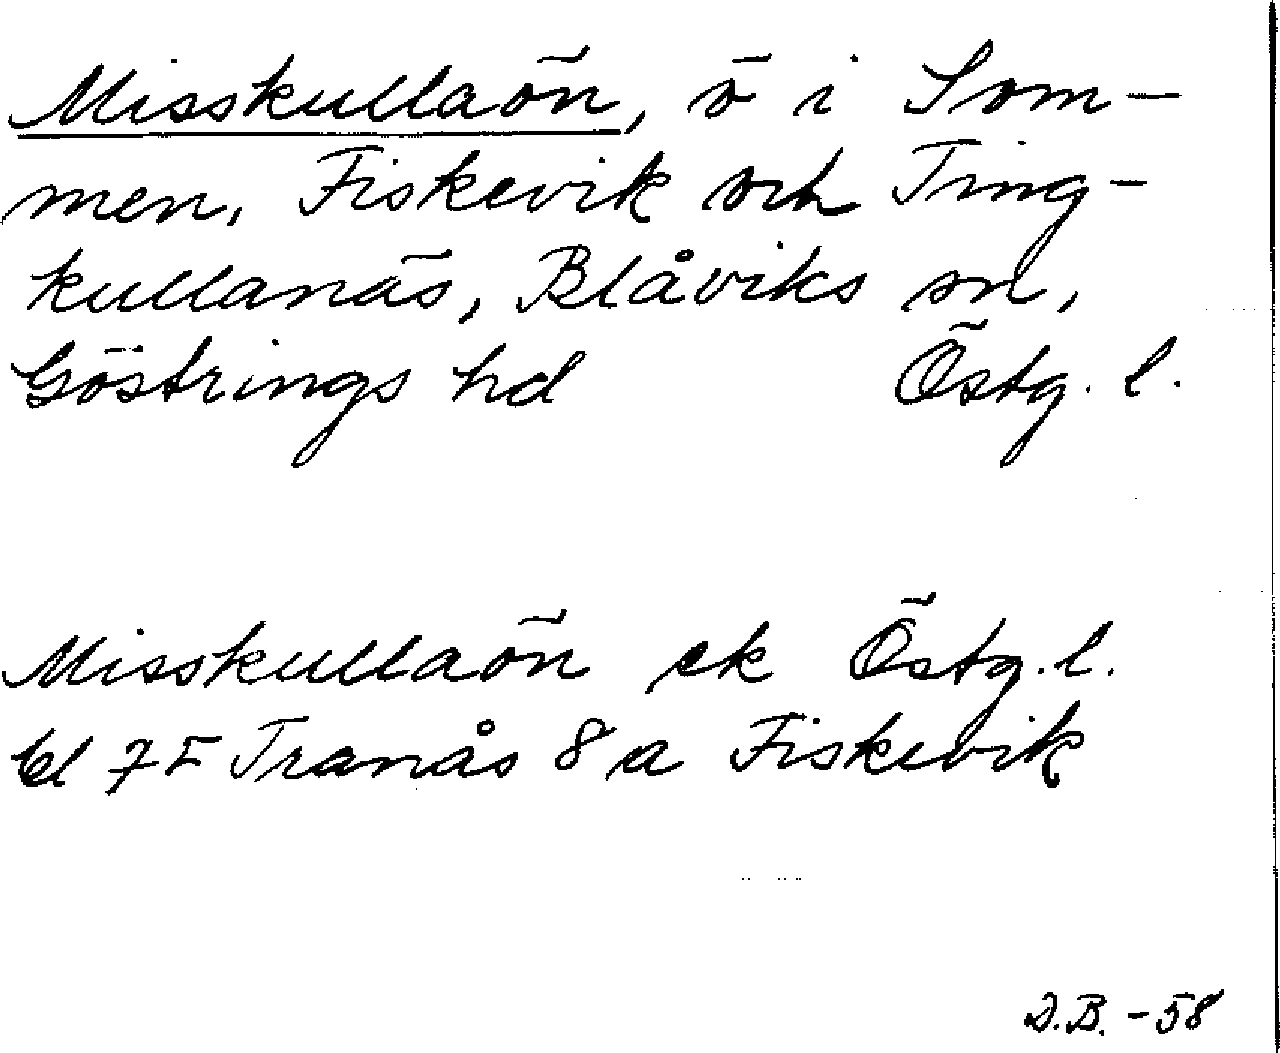 Misskullaön, ö i Som-
men, Fiskevik och Ting-
kullanäs, Blåviks sn,
Göstrings hd Östg. l.
Misskullaön ek Östg. l.
bl 7 I Tranås 8 a Fiskevik
D.B. -58